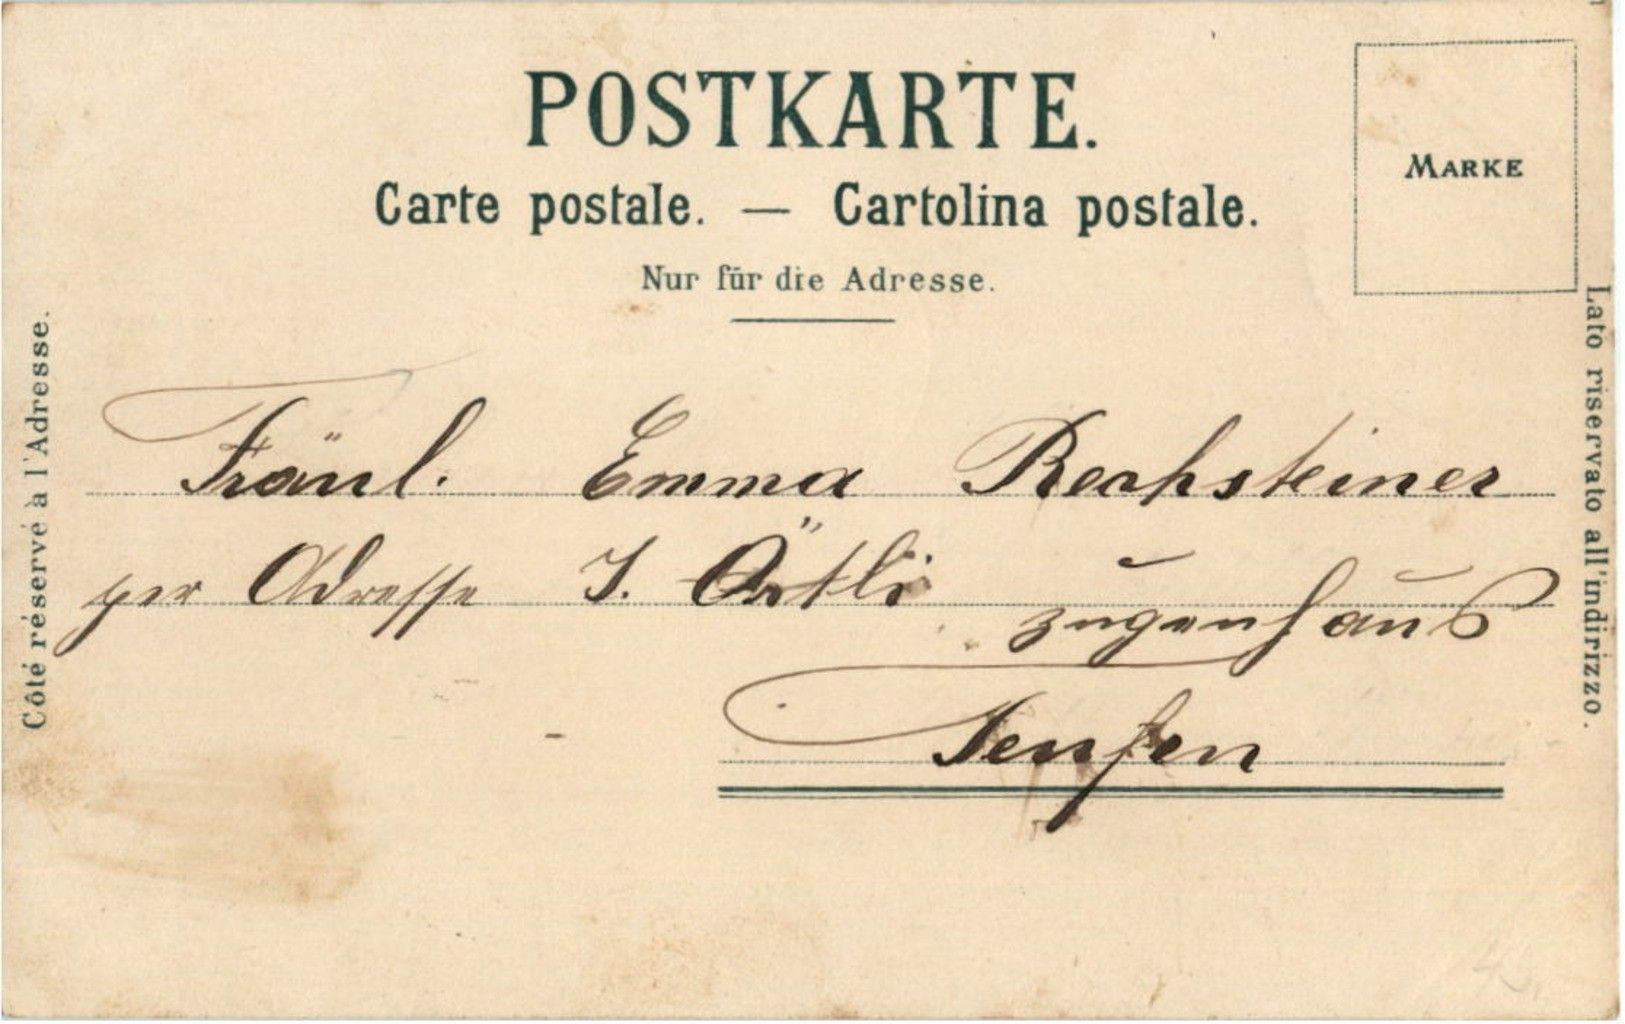 POSTKARTE.
Carte postale. — Cartolina postale.
Nur für die Adresse.
MARKE
Côté réservé à l'Adresse.
Lato riservato all'indirizzo.
Fräul. Emma Rechsteiner
per Adresse J. Örtli
Zugenhaus
Teufen